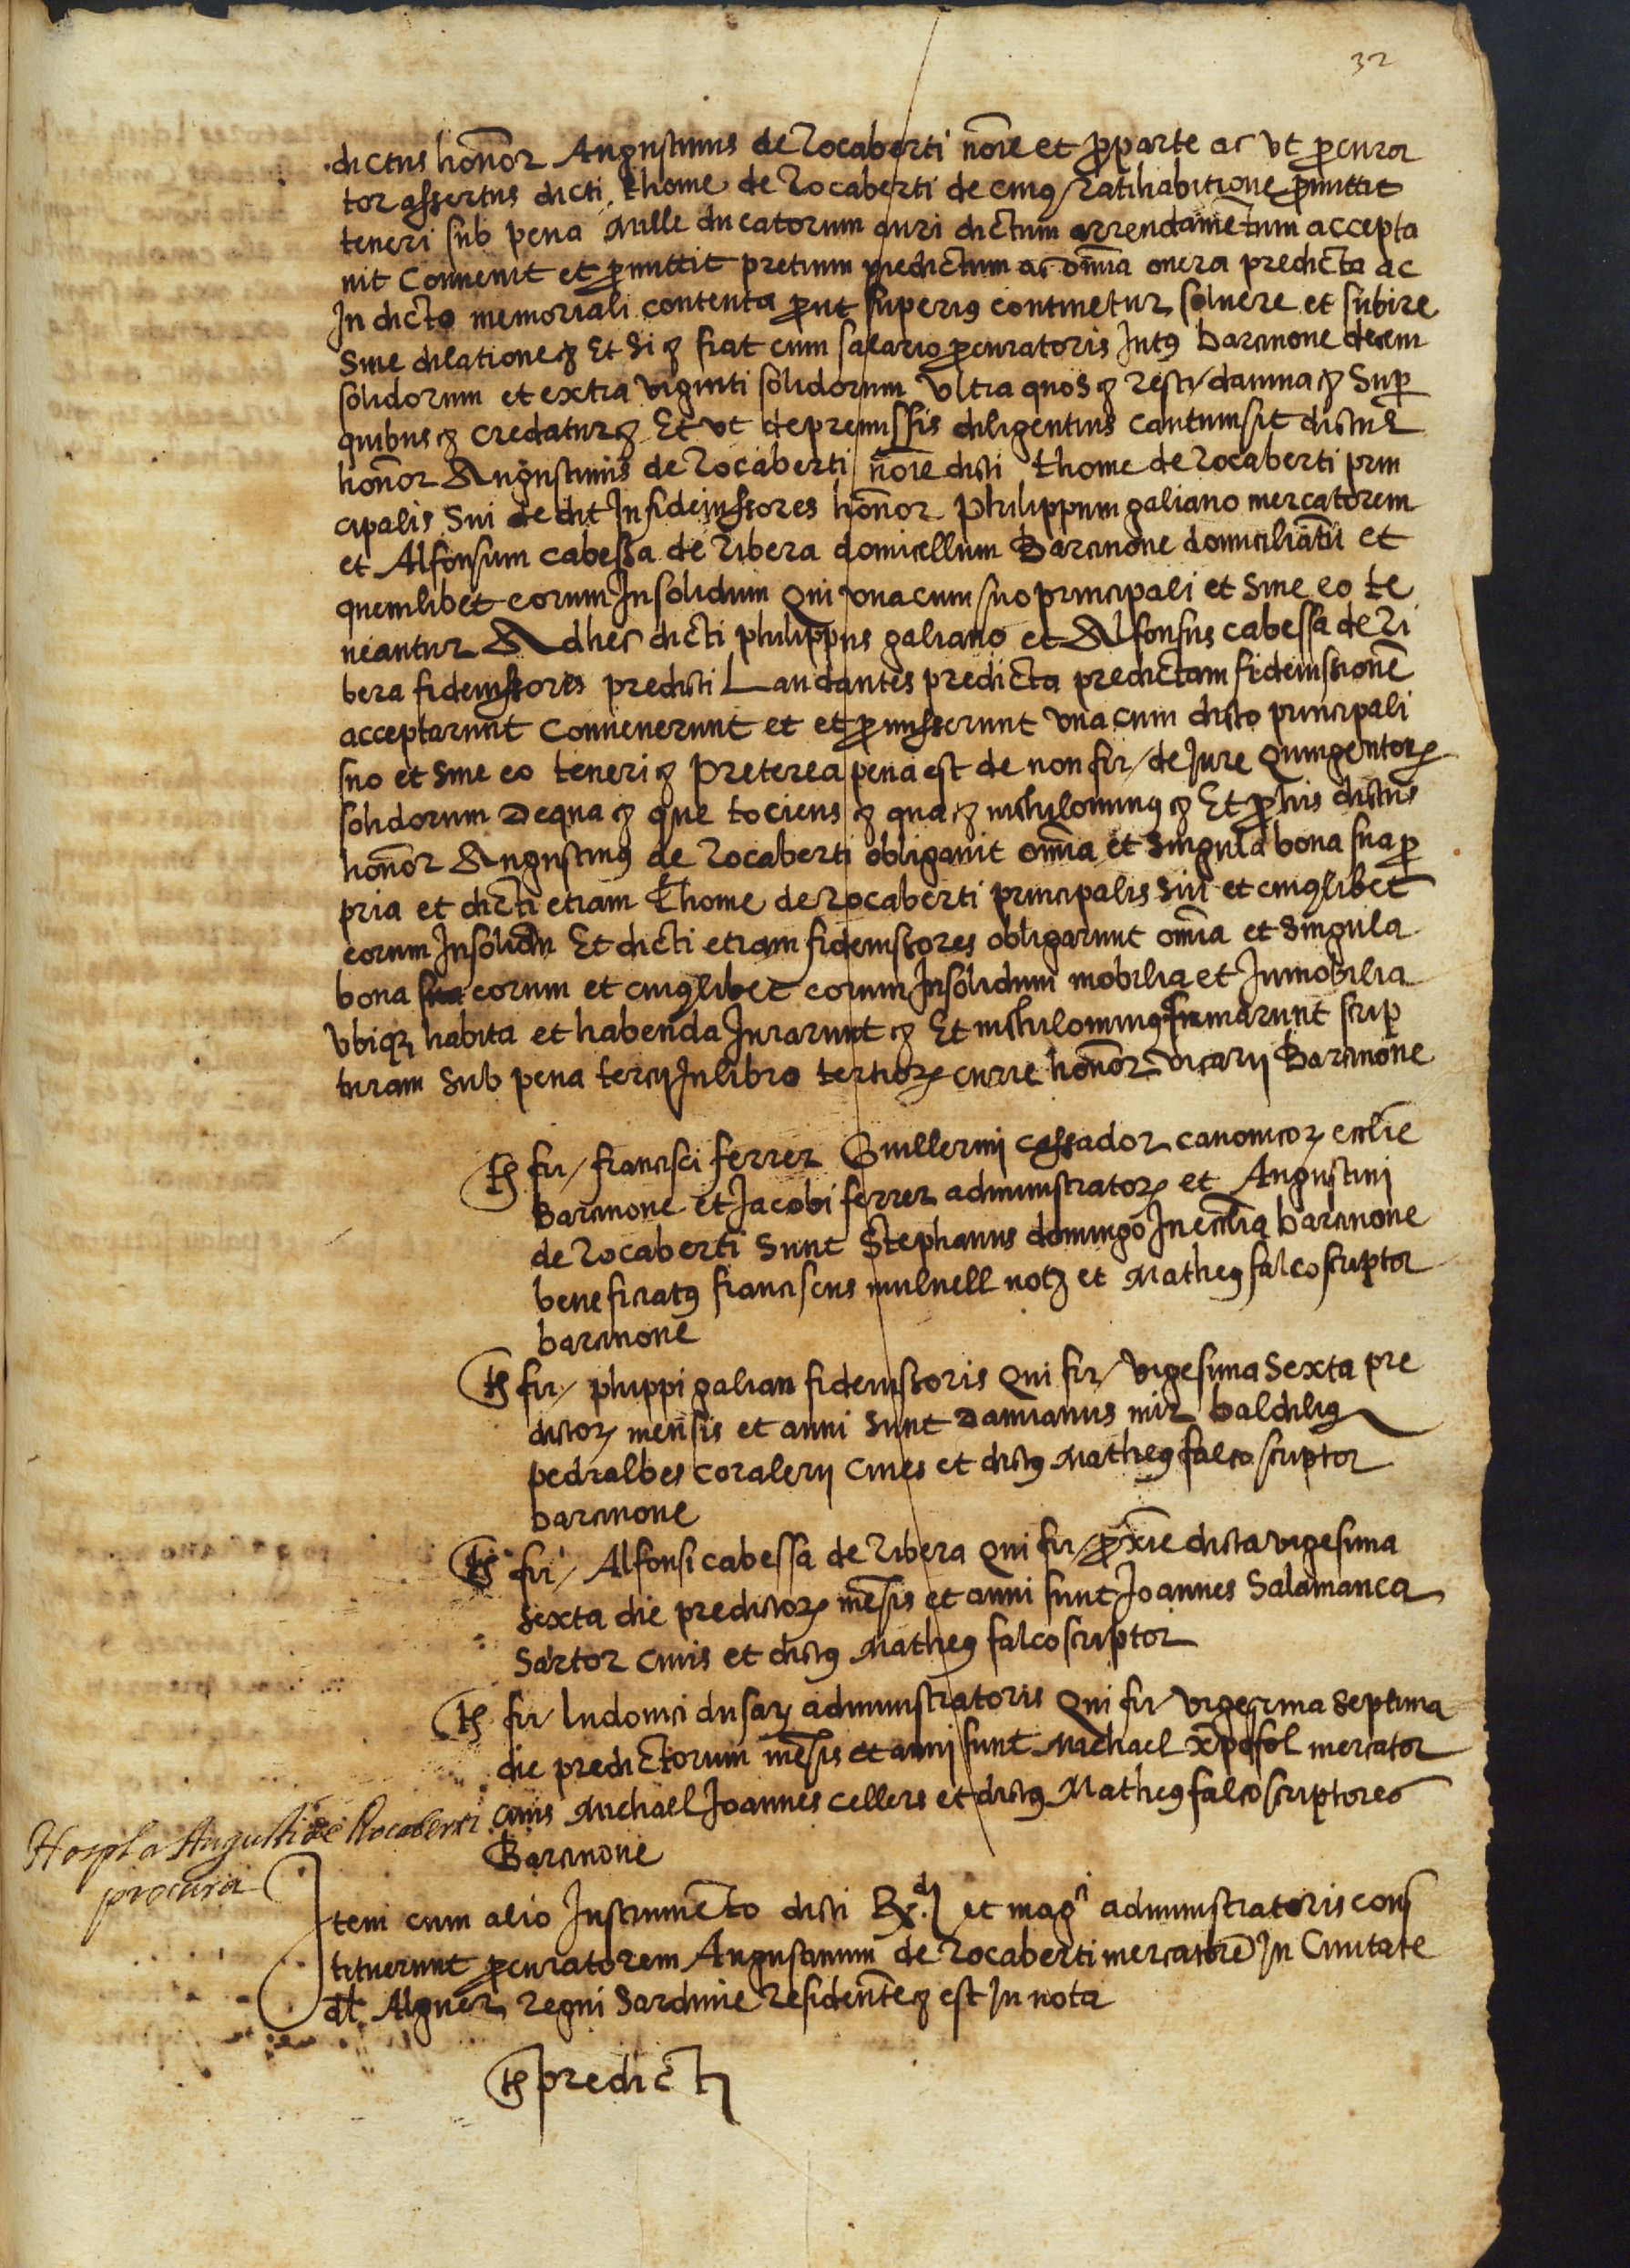 32
dictus honor Augustinus de Rocaberti noīe et pparte ac vt pcura
tor assertus dicti thome de Rocaberti de cuius ratihabitione pmittit
teneri sub pena Mille ducatorum auri dictum arrendamētum accepta
uit Conuenit et pmittit pretium predictum ac omīa onera predicta ac
In dicto memoriali contenta put superius continetur soluere et subire
Sine dilatione &c Et Si &c fiat cum salario pcuratoris Intus barcinone decem
solidorum et extra viginti solidorum Vltra quos &c resti/ damna &c Sup
quibus &c credatur &c Et vt de premissis diligentius cautum sit dictus
honor Augustinus de Rocaberti noīe dicti thome de Rocaberti prin
cipalis Sui dedit In fideiussores honor Philippum galiano mercatorem
et Alfonsum cabessa de Ribera domicellum Barcinone domiciliatū et
quemlibet eorum Insolidum Qui vnacum suo principali et Sine eo te
neantur Ad hec dicti philippus galiano et Alfonsus cabessa de Ri
bera fideiussores predicti Laudantes predicta predictam fideiussionē
acceptarunt Conuenerunt et et pmisserunt vna cum dicto principali
suo et Sine eo teneri &c Preterea pena est de non fir/ de Jure Quingentor
solidorum De qua &c que tociens &c qua &c nichilominus &c Et p his dictus
honor Augustinus de Rocaberti obligauit omīa et Singula bona sua p
pria et dicti etiam thome de Rocaberti principalis Sui et cuiuslibet
eorum Insolidū Et dicti etiam fideiussores obligarunt omīa et Singula
bona sua eorum et cuiuslibet eorum Insolidum mobilia et Inmobilia
vbique habita et habenda Jurarunt &c Et nichilominus firmarunt scrip
turam Sub pena tercij In libro tertior curie honor vicarij Barcinone
ts fir/ francisci ferrer Guillermi cassador canonicor ecclīe
Barcinone et Jacobi ferrer administrator et Augustini
de Rocaberti Sunt Stephanus domingo In ecclīa barcinone
beneficiatus franciscus mulnell not et Matheus falco scriptor
barcinone
ts fir/ phippi galian fideiussoris Qui fir/ vigesima Sexta pre
dictor mensis et anni Sunt Damianus mir baldilius
pedralbes coralerij Ciues et dictus Matheus falco scriptor
barcinone
ts fir/ Alfonsi cabessa de Ribera Qui fir/ pxīe dicta vigesima
sexta die predictor mēsis et anni sunt Joannes Salamanca
Sartor Ciuis et dictus Matheus falco scriptor
ts fir/ ludouici dusay administratoris Qui fir/ vigecima Septima
die predictorum mēsis et anni sunt Michael xpofol mercator
Ciuis Michael Joannes cellers et dictus Matheus falco scriptores
Barcinone
Hospl a Augusti de Rocaberti
procura
Item cum alio Instrumēto dicti Rdi et magci administratoris cons
tituerunt pcuratorem Augustinum de Rocaberti mercatorē In Ciuitate
al Alguer regni Sardinie residentē &c est In nota
ts predicti